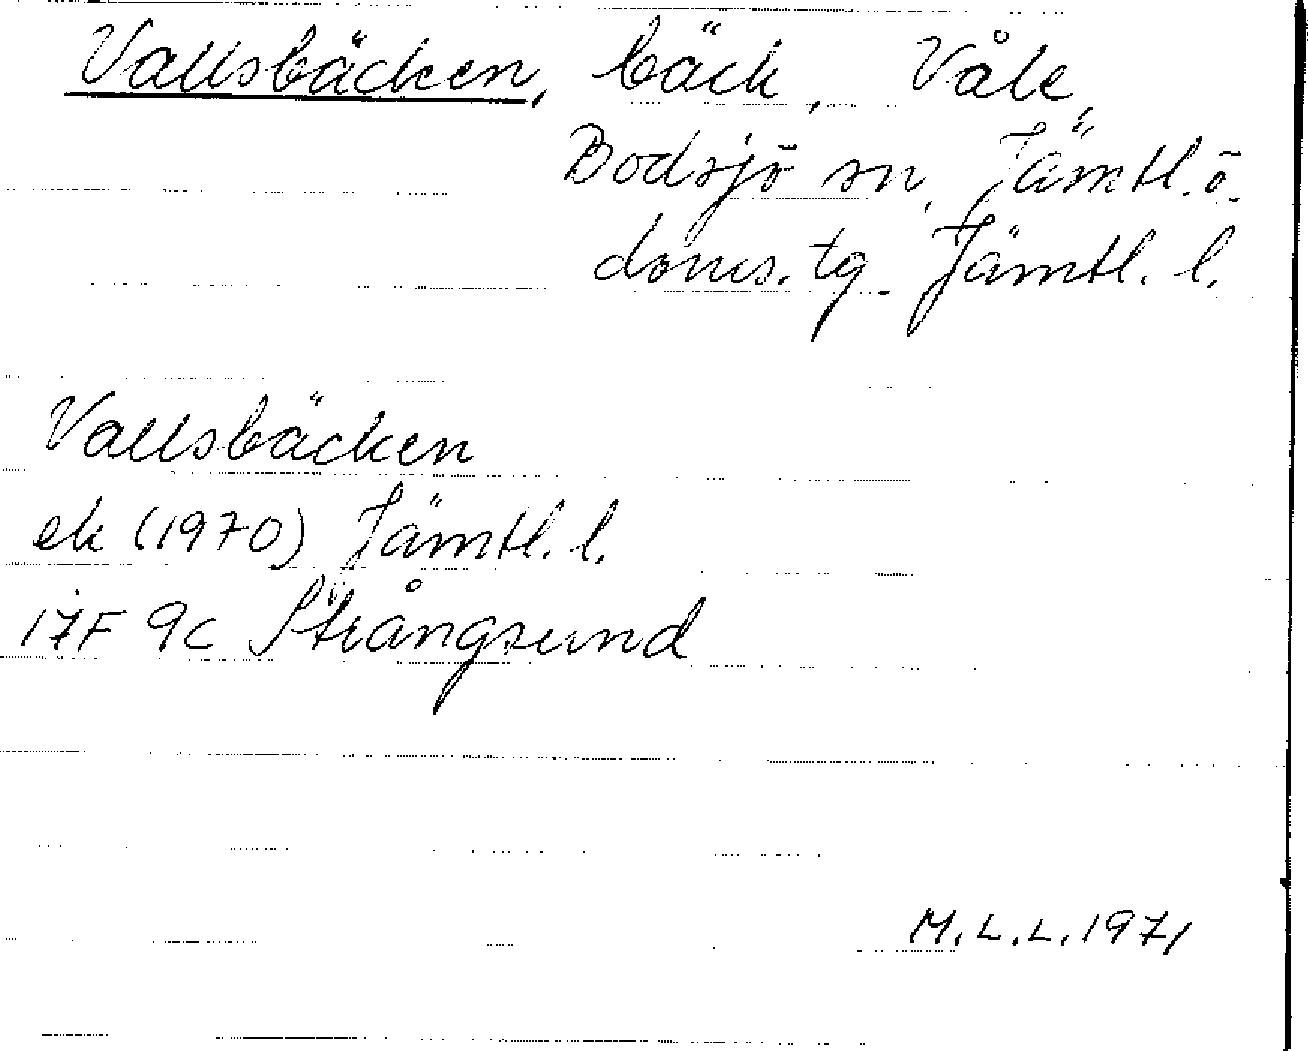 Vallsbäcken, bäck, Våle,
Bodsjö sn, Jämtl. ö.
doms. tg. Jämtl. l.
Vallsbäcken
ek (1970) Jämtl. l.
17F 9c Strångsund
M.L.L. 1971